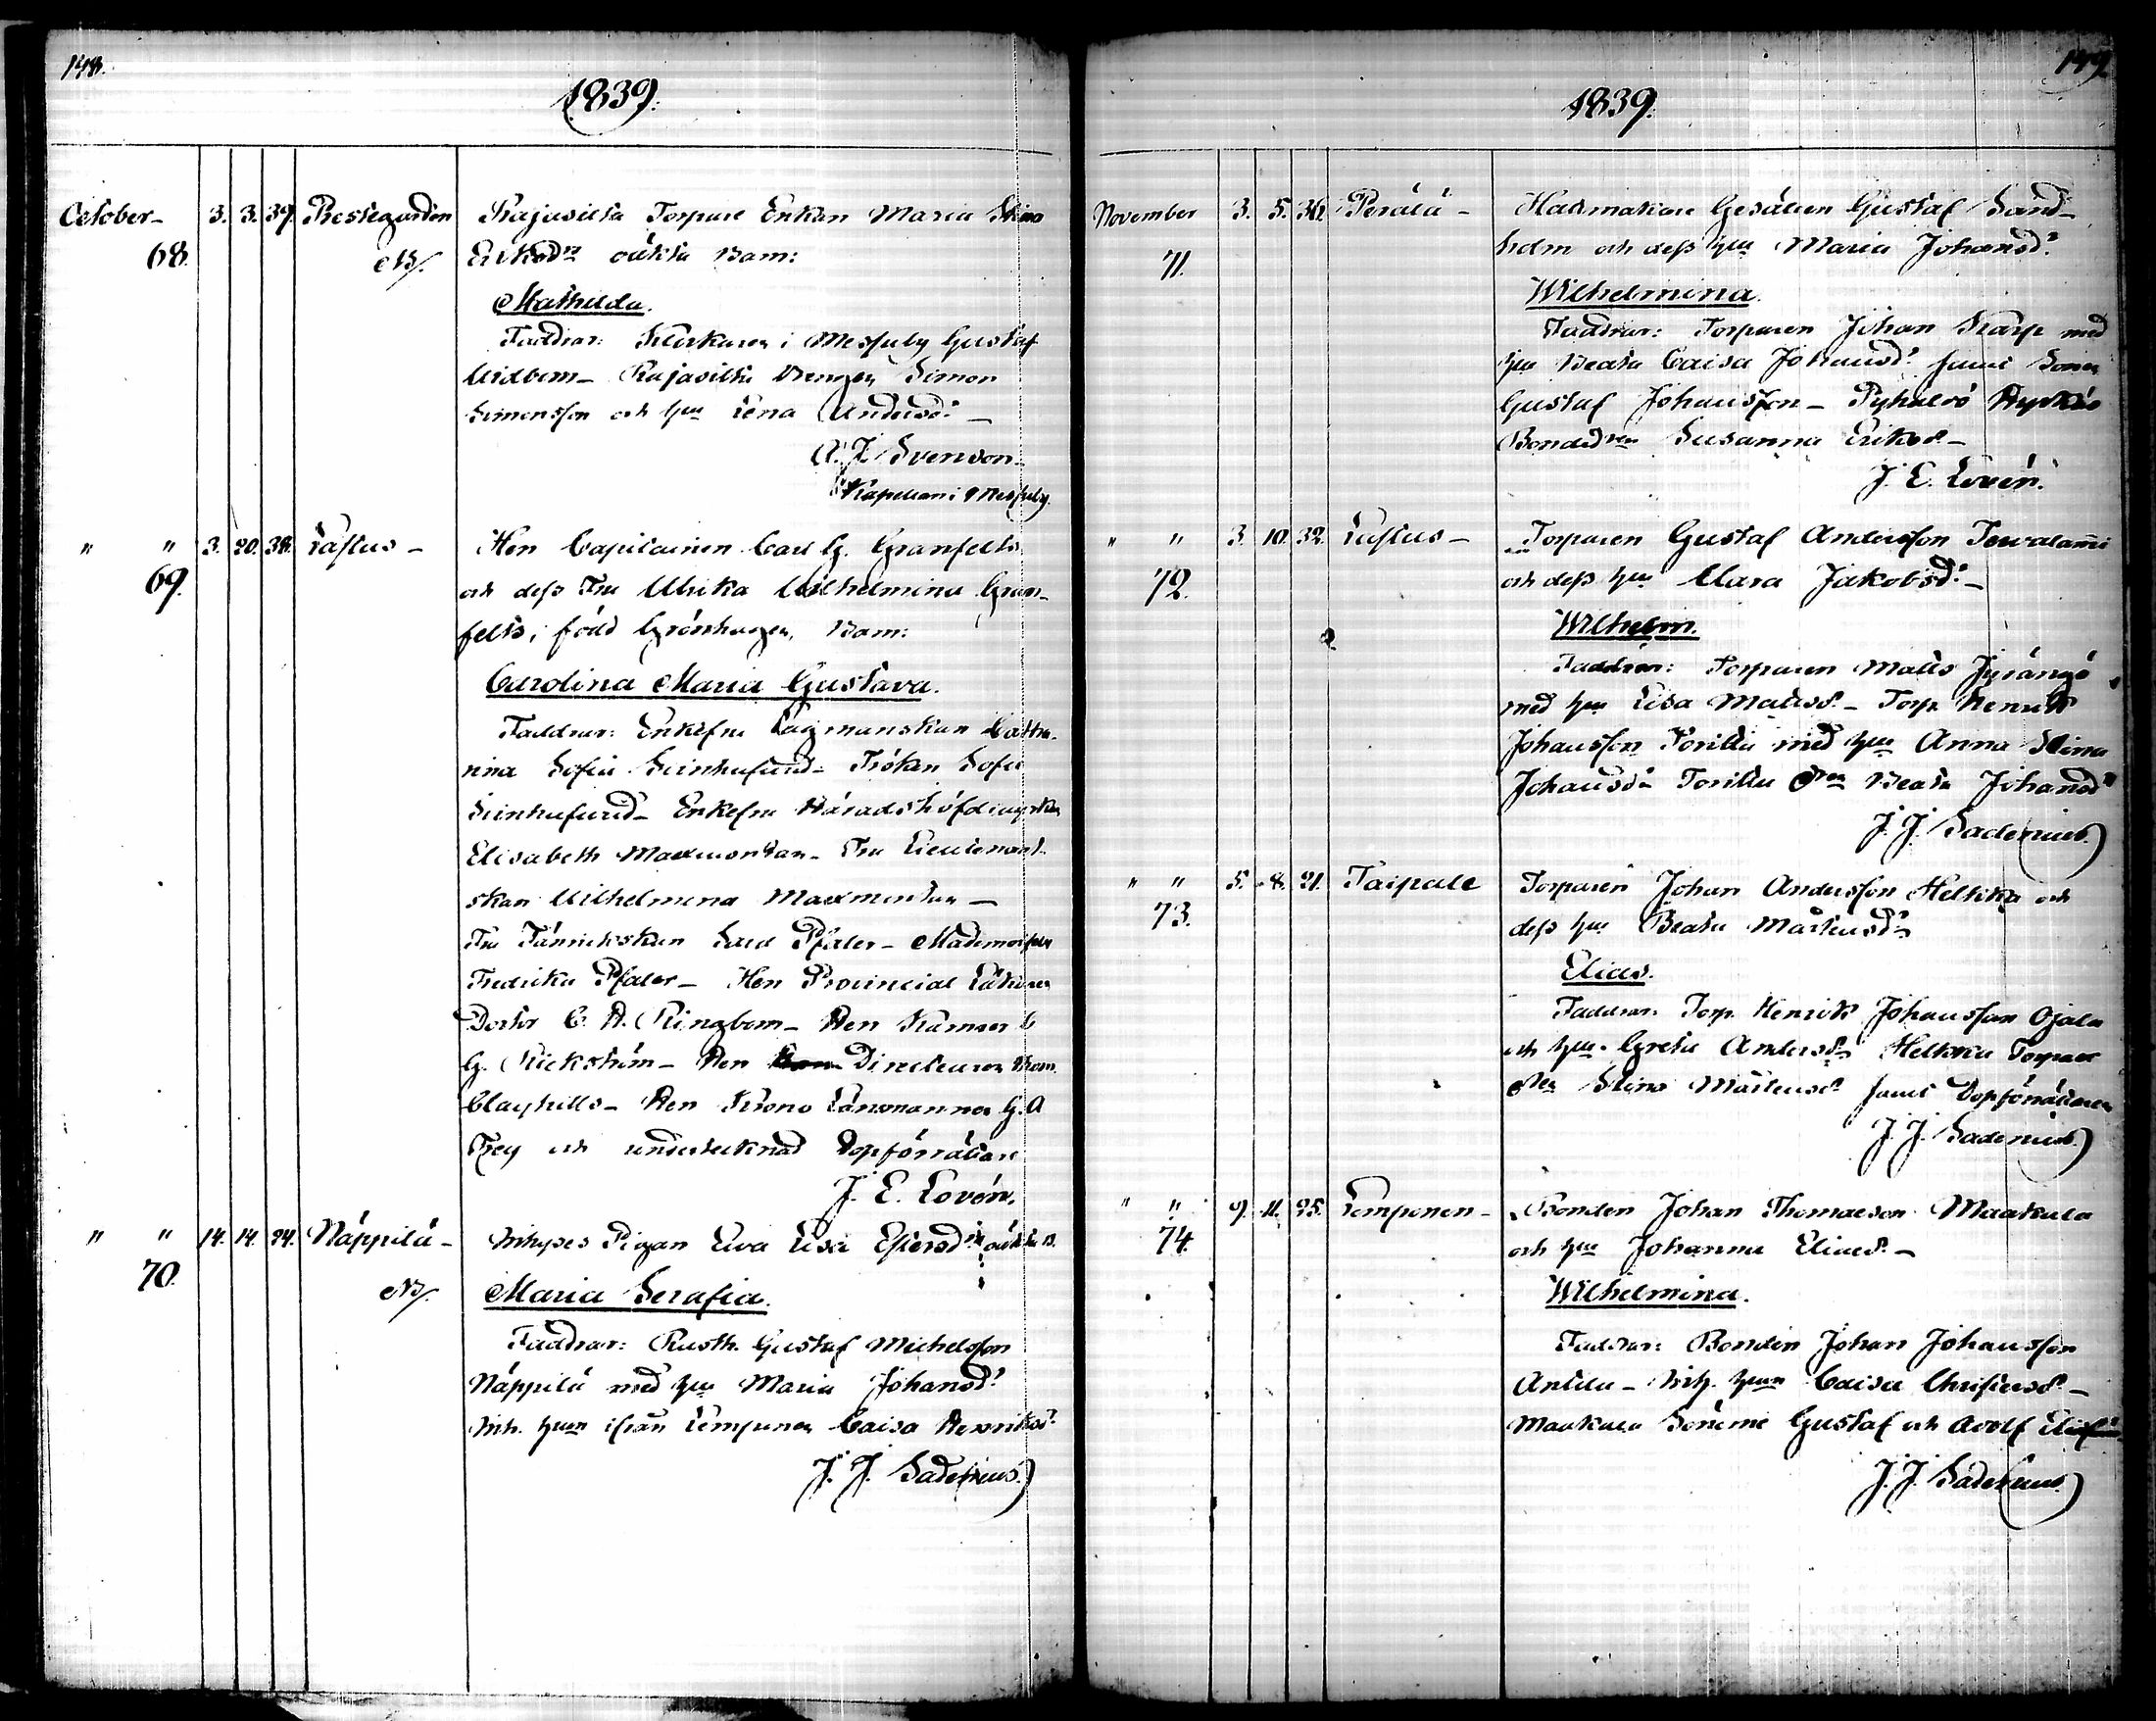 148.
1839.
October_ 3. 3. 39. Prestegården Rajasilta Torpare Enkan Maria Stina
68. NB/. Eriksdr oäkta Barn:
Mathilda.
Faddrar: Klockaren i Messuby Gustaf
Widbom_ Rajasilta Drengen Simon
Simonsson och hu Lena Andersdr _
A. J. Svenson.
Kapellan i Messuby.
" " 3. 20. 38. Laßus_ Herr Capitainen Carl G. Granfelts
69. och deß Fru Ulrika Wilhelmina Gran-
felts, född Grönhagen, Barn:
Carolina Maria Gustava.
Faddrar: Enkefru Lagmanskan Catha-
rina Sofia Svinhufvud_ Fröken Sofie
Svinhufvud_ Enkefru Häradshöfdingskan
Elisabeth Maxmontan_ Fru Lieutenant-
skan Wilhelmina Maxmontan _
Fru Fänrickskan Pfaler_ Mademoiselle
Fredrika Pfaler_ Herr Provincial Läkaren
Doctor C. H. Ringbom_ Herr Kamrer C
G. Rickström_ Herr Directeuren Thom.
Clayhills_ Herr Krono Länsmannen G. A
Frey och undertecknad Dopförrättare
J. E. Lovén.
" " 14. 14. 24. Näppilä_ Inhyses Pigan Eva Lisa Estersdr oäkta B.
70. NB/. Maria Serafia.
Faddrar: Rusth. Gustaf Michelsson
Näppilä med hu Maria Johansdr
Inh. hun ifrån Lemponen Caisa Henriksdr
J. J. Sadenius.
149.
1839.
November 3. 5. 36. Perälä_ Hattmakare Gesällen Gustaf Sand-
71. holm och deß hu Maria Johansdr
Wilhelmina.
Faddrar: Torparen Johan Skarp med
hu Beata Caisa Johansdr samt Sonen
Gustaf Johansson_ Pyhäerö Hyrkäs
Bondedrn Susanna Eriksdr_
J. E. Lovén.
" " 3. 10. 32. Laßus_ Torparen Gustaf Andersson Tervalami
72. och deß hu Clara Jakobsdr_
Wilhelm.
Faddrar: Torparen Matts Jyrängö
med hu Lisa Mattsdr_ Torp Henrik
Johansson Torittu med hu Anna Stina
Johansdr Torittu Drn Beata Johansdr
J. J. Sadenius.
" " 5. 8. 21. Taipale Torparen Johan Andersson Helkka och
73. deß hu Beata Mårtensdr
Elias.
Faddrar: Torp. Henrik Johansson Ojala
och hu Greta Andersdr Helkka Torpare
drn Stina Mårtensdr samt Dopförrättaren
J. J. Sadenius.
" " 9. 11. 25. Lemponen_ Bonden Johan Thomasson Maakala
74. och hu Johanna Eliaedr_
Wilhelmina.
Faddrar: Bonden Johan Johansson
Anttila_ Inh. hun Caisa Christersdr_
Maakala Sönerne Gustaf och Adolf
J. J. Sadenius.